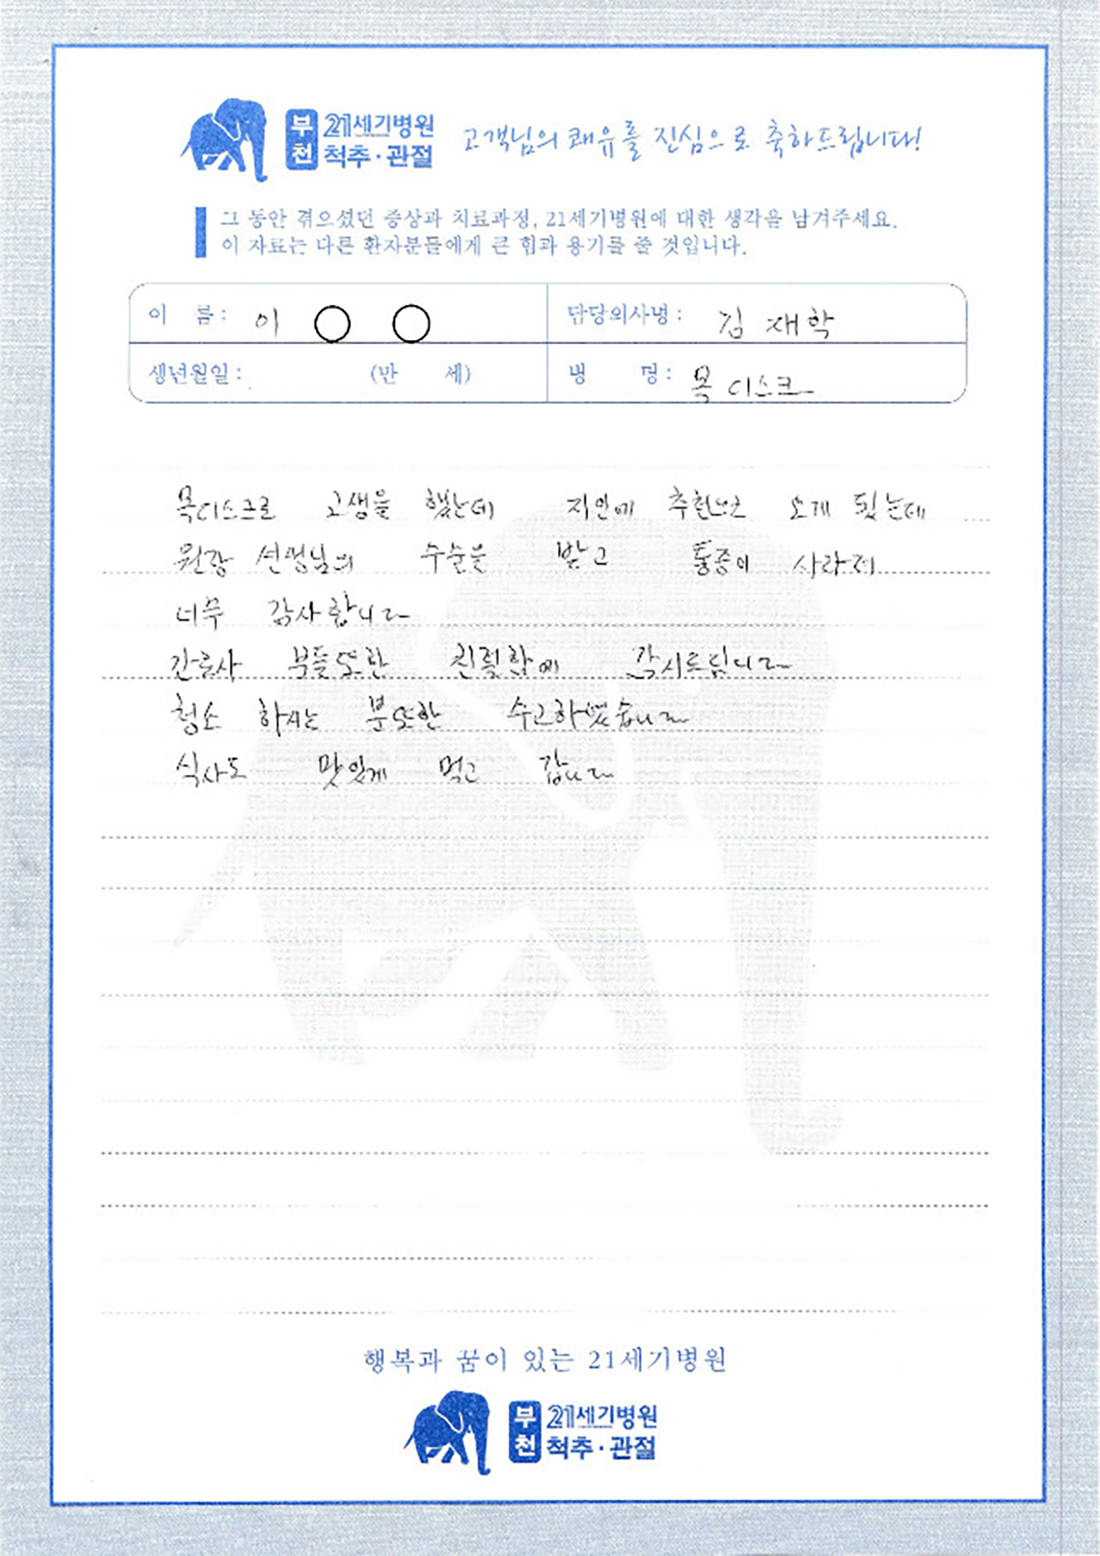 부천 21세기병원 척추·관절 고객님의 쾌유를 진심으로 축하드립니다!
그 동안 겪으셨던 증상과 치료과정, 21세기병원에 대한 생각을 남겨주세요.
이 자료는 다른 환자분들에게 큰 힘과 용기를 줄 것입니다.
이 름 : 이 ○ ○ 담당의사명 : 김재학
생년월일 : (만 세) 병 명 : 목 디스크
목디스크로 고생을 했는데 지인에 추천으로 소개 됬는데
원장 선생님의 수술을 받고 통증이 사라져
너무 감사합니다
간호사 부들또한 친절함에 감사드립니다
청소 하시는 분또한 수고하셨습니다
식사도 맛있게 먹고 갑니다
행복과 꿈이 있는 21세기병원
부천 21세기병원 척추·관절